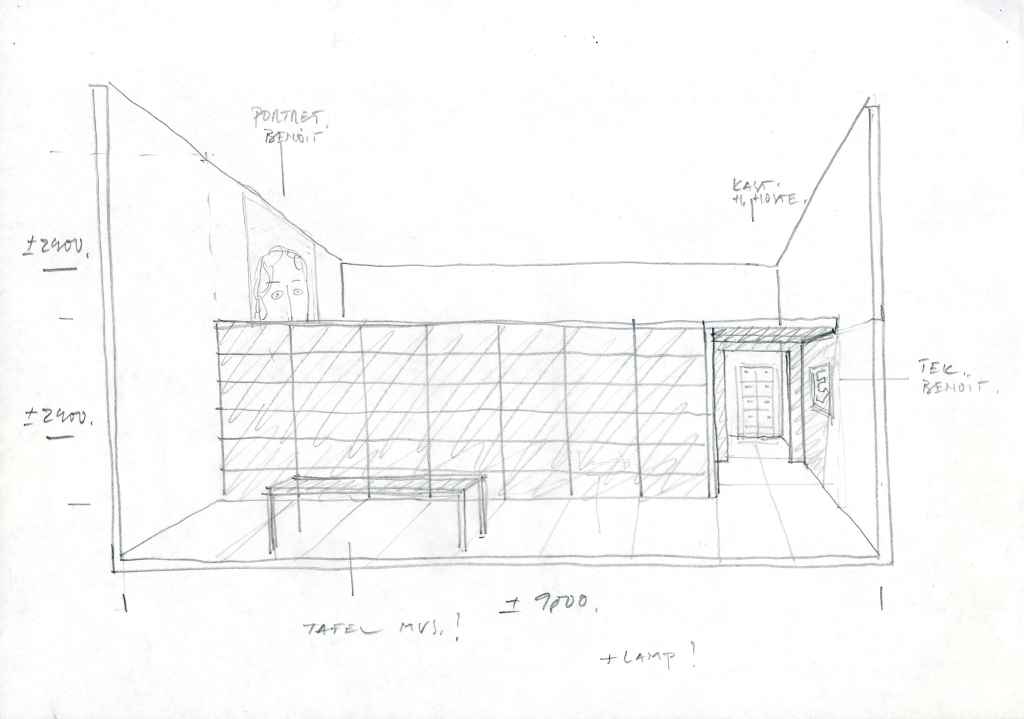 PORTRET.
BENOIT
KAST.
H. HOSTE.
± 2400.
TEK.
BENOIT.
± 2400.
± 9000.
TAFEL MVS.!
+ LAMP!